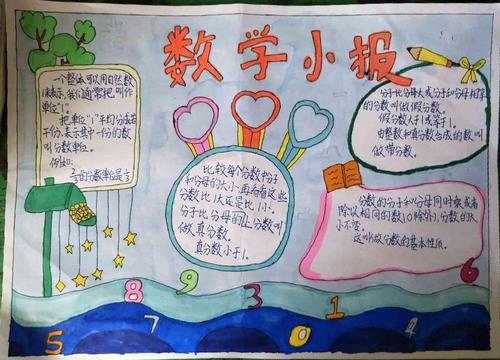 数学小报
一个整体可以用自然数
1来表示,我们通常把叫作
单位"1"。
把单位"1"平均分成若
干份,表示其中一份的数
叫分数单位。
例如:
的分数单位是
比较每个分数中分子
和分母的大小,再看看这些
分数比1大还是比1小。
分子比分母小的分数叫
做真分数。
真分数小于1。
分子比分母大或分子和分母相等
的分数叫做假分数。
假分数大于1或等于1。
由整数和真分数合成的数叫
做带分数。
分数的分子和分母同时乘或者
除以相同的数(0除外),分数的大
小不变。
这叫做分数的基本性质。
8 9 3 1 6
5 7 0